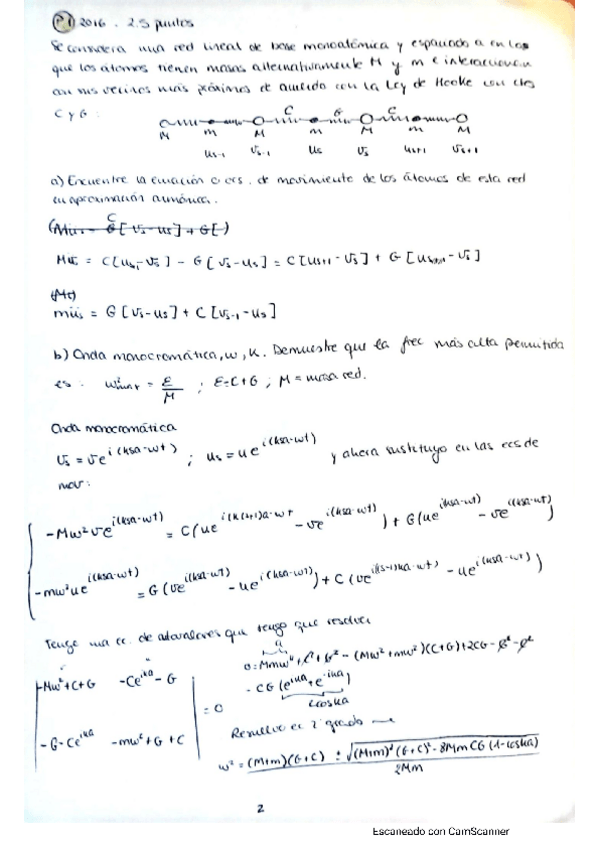 P.1 2016. 2.5 puntos
Se considera una red lineal de base monoatómica y espaciado a en la
que los átomos tienen masas alternativamente M y m e interaccionan
con sus vecinos más próximos de acuerdo con la Ley de Hooke con ctes
C y G:
C G C
M m M m M m M
us-1 vs-1 us vs us+1 vs+1
a) Encuentre la ecuación o ecs. de movimiento de los átomos de esta red
en aproximación armónica.
= C[us+1 - vs] + G[
müs = G[vs-us] + C[vs-1-us]
b) Onda monocromática, w, K. Demuestre que la frec más alta permitida
es: w²max = E/M ; E=C+G ; M = masa red.
Onda monocromática
vs = v e^i(ksa-wt) ; us = u e^i(ksa-wt) y ahora sustituyo en las ecs de
mov:
-Mw²ve^i(ksa-wt) = C(ue^i(k(s+1)a-wt - ve^i(ksa-wt)) + G(ue^i(ksa-wt) - ve^i(ksa-wt))
-mw²ue^i(ksa-wt) = G(ve^i(ksa-wt) - ue^i(ksa-wt)) + C(ve^i(s-1)ka-wt) - ue^i(ksa-wt))
Tengo una ec. de autovalores que tengo que resolver
-Mw²+C+G -Ce^ika-G
= 0
-G-Ce^ika -mw²+G+C
0=Mmw⁴+C²+G²-(Mw²+mw²)(C+G)+2CG-G²-C²
-CG(e^ika+e^-ika)
2coska
Resuelvo ec 2º grado
w² = (M+m)(G+C) ± √(M+m)²(G+C)²-8MmCG(1-coska)
2Mm
2
Escaneado con CamScanner